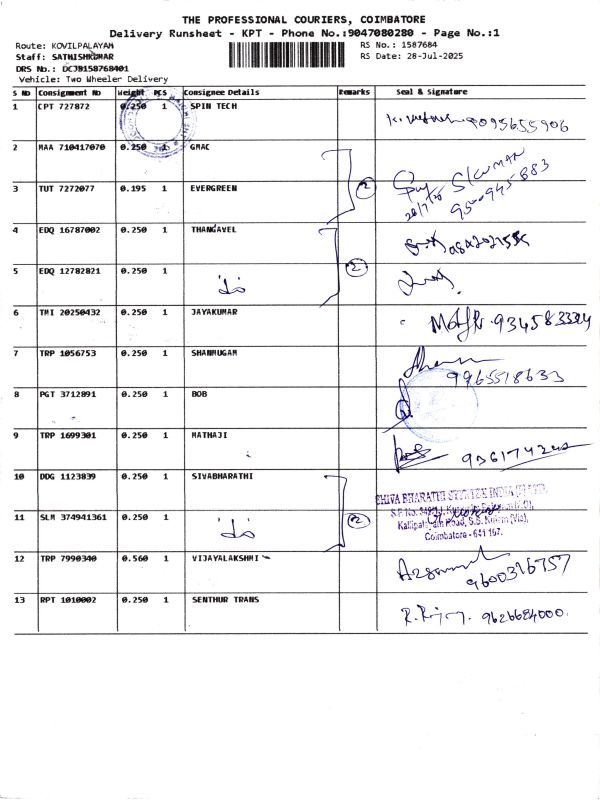 THE PROFESSIONAL COURIERS, COIMBATORE
Delivery Runsheet - KPT - Phone No.:9047080280 - Page No.:1
Route: KOVILPALAYAM
RS No.: 1587684
Staff: SATHISHKUMAR
RS Date: 28-Jul-2025
DRS No.: DCJB158768401
Vehicle: Two Wheeler Delivery
S No Consignment No Weight PCS Consignee Details Remarks Seal & Signature
1 CPT 727872 0.250 1 SPIN TECH 8095655906
2 MAA 710417070 0.250 1 GMAC
3 TUT 7272077 0.195 1 EVERGREEN 2 S/KUMAN
28/7/25 9500945883
4 EDQ 16787002 0.250 1 THANGAVEL
5 EDQ 12782821 0.250 1 2
6 TMI 20250432 0.250 1 JAYAKUMAR
7 TRP 1056753 0.250 1 SHANMUGAM 9965518633
8 PGT 3712891 0.250 1 BOB
9 TRP 1699301 0.250 1 MATHAJI
10 DDG 1123839 0.250 1 SIVABHARATHI
11 SLM 374941361 0.250 1 2
Coimbatore - 641 107.
12 TRP 7990340 0.560 1 VIJAYALAKSHMI 9600316757
13 RPT 1010002 0.250 1 SENTHUR TRANS 9626684000.